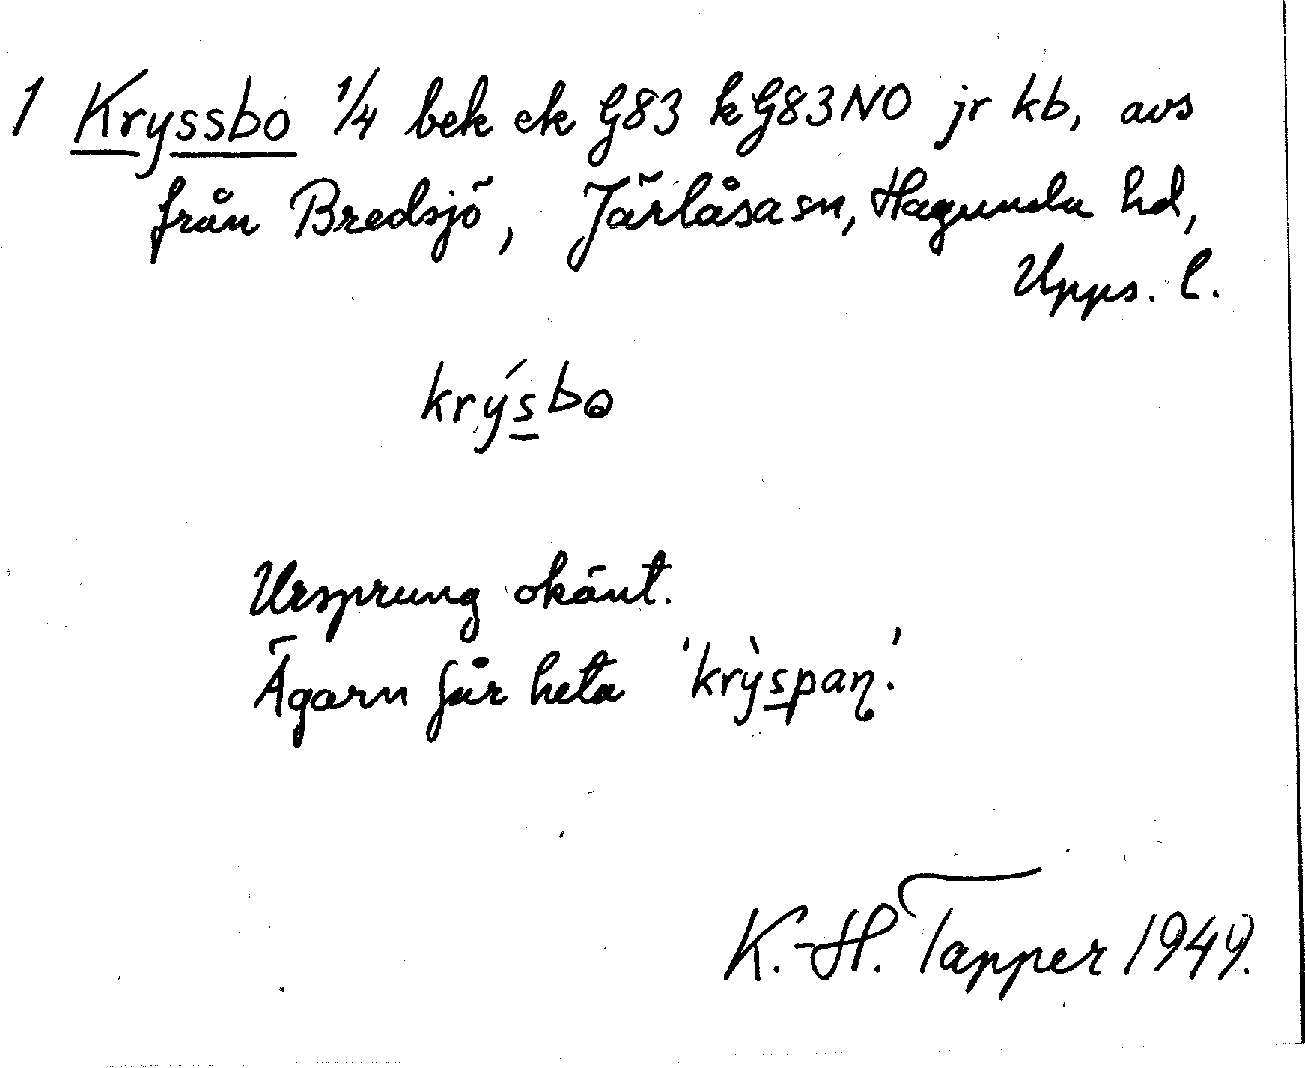 1 Kryssbo 1/4 bek ek G83 k G83NO jr kb, avs
från Bredsjö, Järlåsa sn, Hagunda hd,
Upps. l.
krýs̲bɷ
Ursprung okänt.
Ägarn får heta 'krỳs̲paɳ.'
K.-H. Tapper 1949.